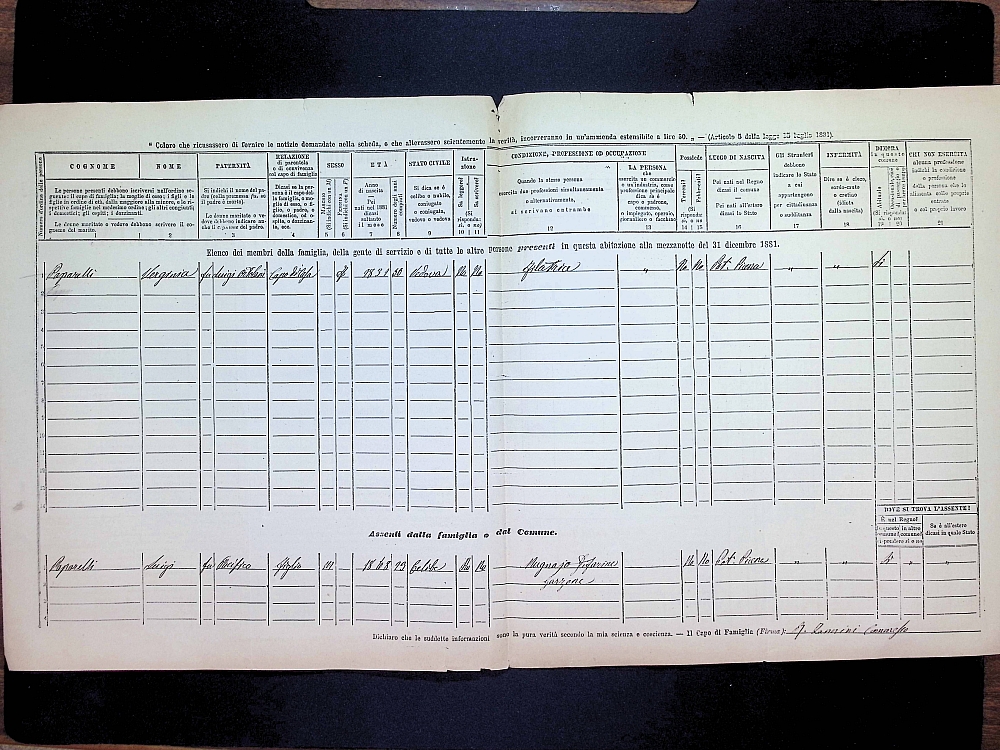 " Coloro che ricusassero di fornire le notizie domandate nella scheda, o che alterassero scientemente la verità, incorreranno in un'ammenda estensibile a lire 50. „ — (Articolo 5 della legge 15 luglio 1881).
COGNOME NOME PATERNITÀ RELAZIONE di parentela o di convivenza col capo di famiglia SESSO ETÀ STATO CIVILE Istruzione CONDIZIONE, PROFESSIONE OD OCCUPAZIONE Possiede LUOGO DI NASCITA Gli Stranieri debbono indicare lo Stato a cui appartengono per cittadinanza o sudditanza INFERMITÀ DIMORA in questo comune CHI NON ESERCITA alcuna professione
Le persone presenti debbono iscriversi nell'ordine seguente: il capo di famiglia; la moglie di esso; i figli e le figlie in ordine di età, dalla maggiore alla minore, e le rispettive famiglie nel medesimo ordine; gli altri congiunti; i domestici; gli ospiti; i dozzinanti.
Le donne maritate o vedove debbono scrivere il cognome del marito.
Si indichi il nome del padre
Le donne maritate o vedove debbono indicare anche
Dicasi se la persona è il capo della famiglia, o moglie di esso, o figlio, o padre, o domestico, od ospite, o dozzinante, ecc.
Maschi (Si indichi con M)
Femmine (Si indichi con F)
Anno di nascita
Pei nati nel 1881 dicasi soltanto il mese
Numero degli anni compiuti
Si dica se è celibe o nubile, coniugato o coniugata, vedovo o vedova
Sa leggere?
Sa scrivere?
(Si risponda: sì, o no)
Quando la stessa persona esercita due professioni simultaneamente o alternativamente, si scrivano entrambe
LA PERSONA che esercita un commercio o un'industria, come professione principale, dica se è capo o padrone, commesso, o impiegato, operaio, giornaliero o facchino
Pei nati nel Regno dicasi il comune
Pei nati all'estero dicasi lo Stato
Dica se è cieco, sordo-muto o cretino (idiota dalla nascita)
2 3 4 5 6 7 8 9 10 11 12 13 14 15 16 17 18 19 20 21
Elenco dei membri della famiglia, della gente di servizio e di tutte le altre persone presenti in questa abitazione alla mezzanotte del 31 dicembre 1881.
Paparelli fu Luigi Vedova No No Filatrice „ No No Pot. Picena „ „ Sì
DOVE SI TROVA L'ASSENTE?
È nel Regno?
Se è all'estero dicasi in quale Stato
Assenti dalla famiglia o dal Comune.
Paparelli Luigi fu Pacifico Figlio M 1868 13 Celibe No No Mugnajo No No Pot. Picena „ „ Sì „ „
Garzone
Dichiaro che le suddette informazioni sono la pura verità secondo la mia scienza e coscienza. — Il Capo di Famiglia (Firma):